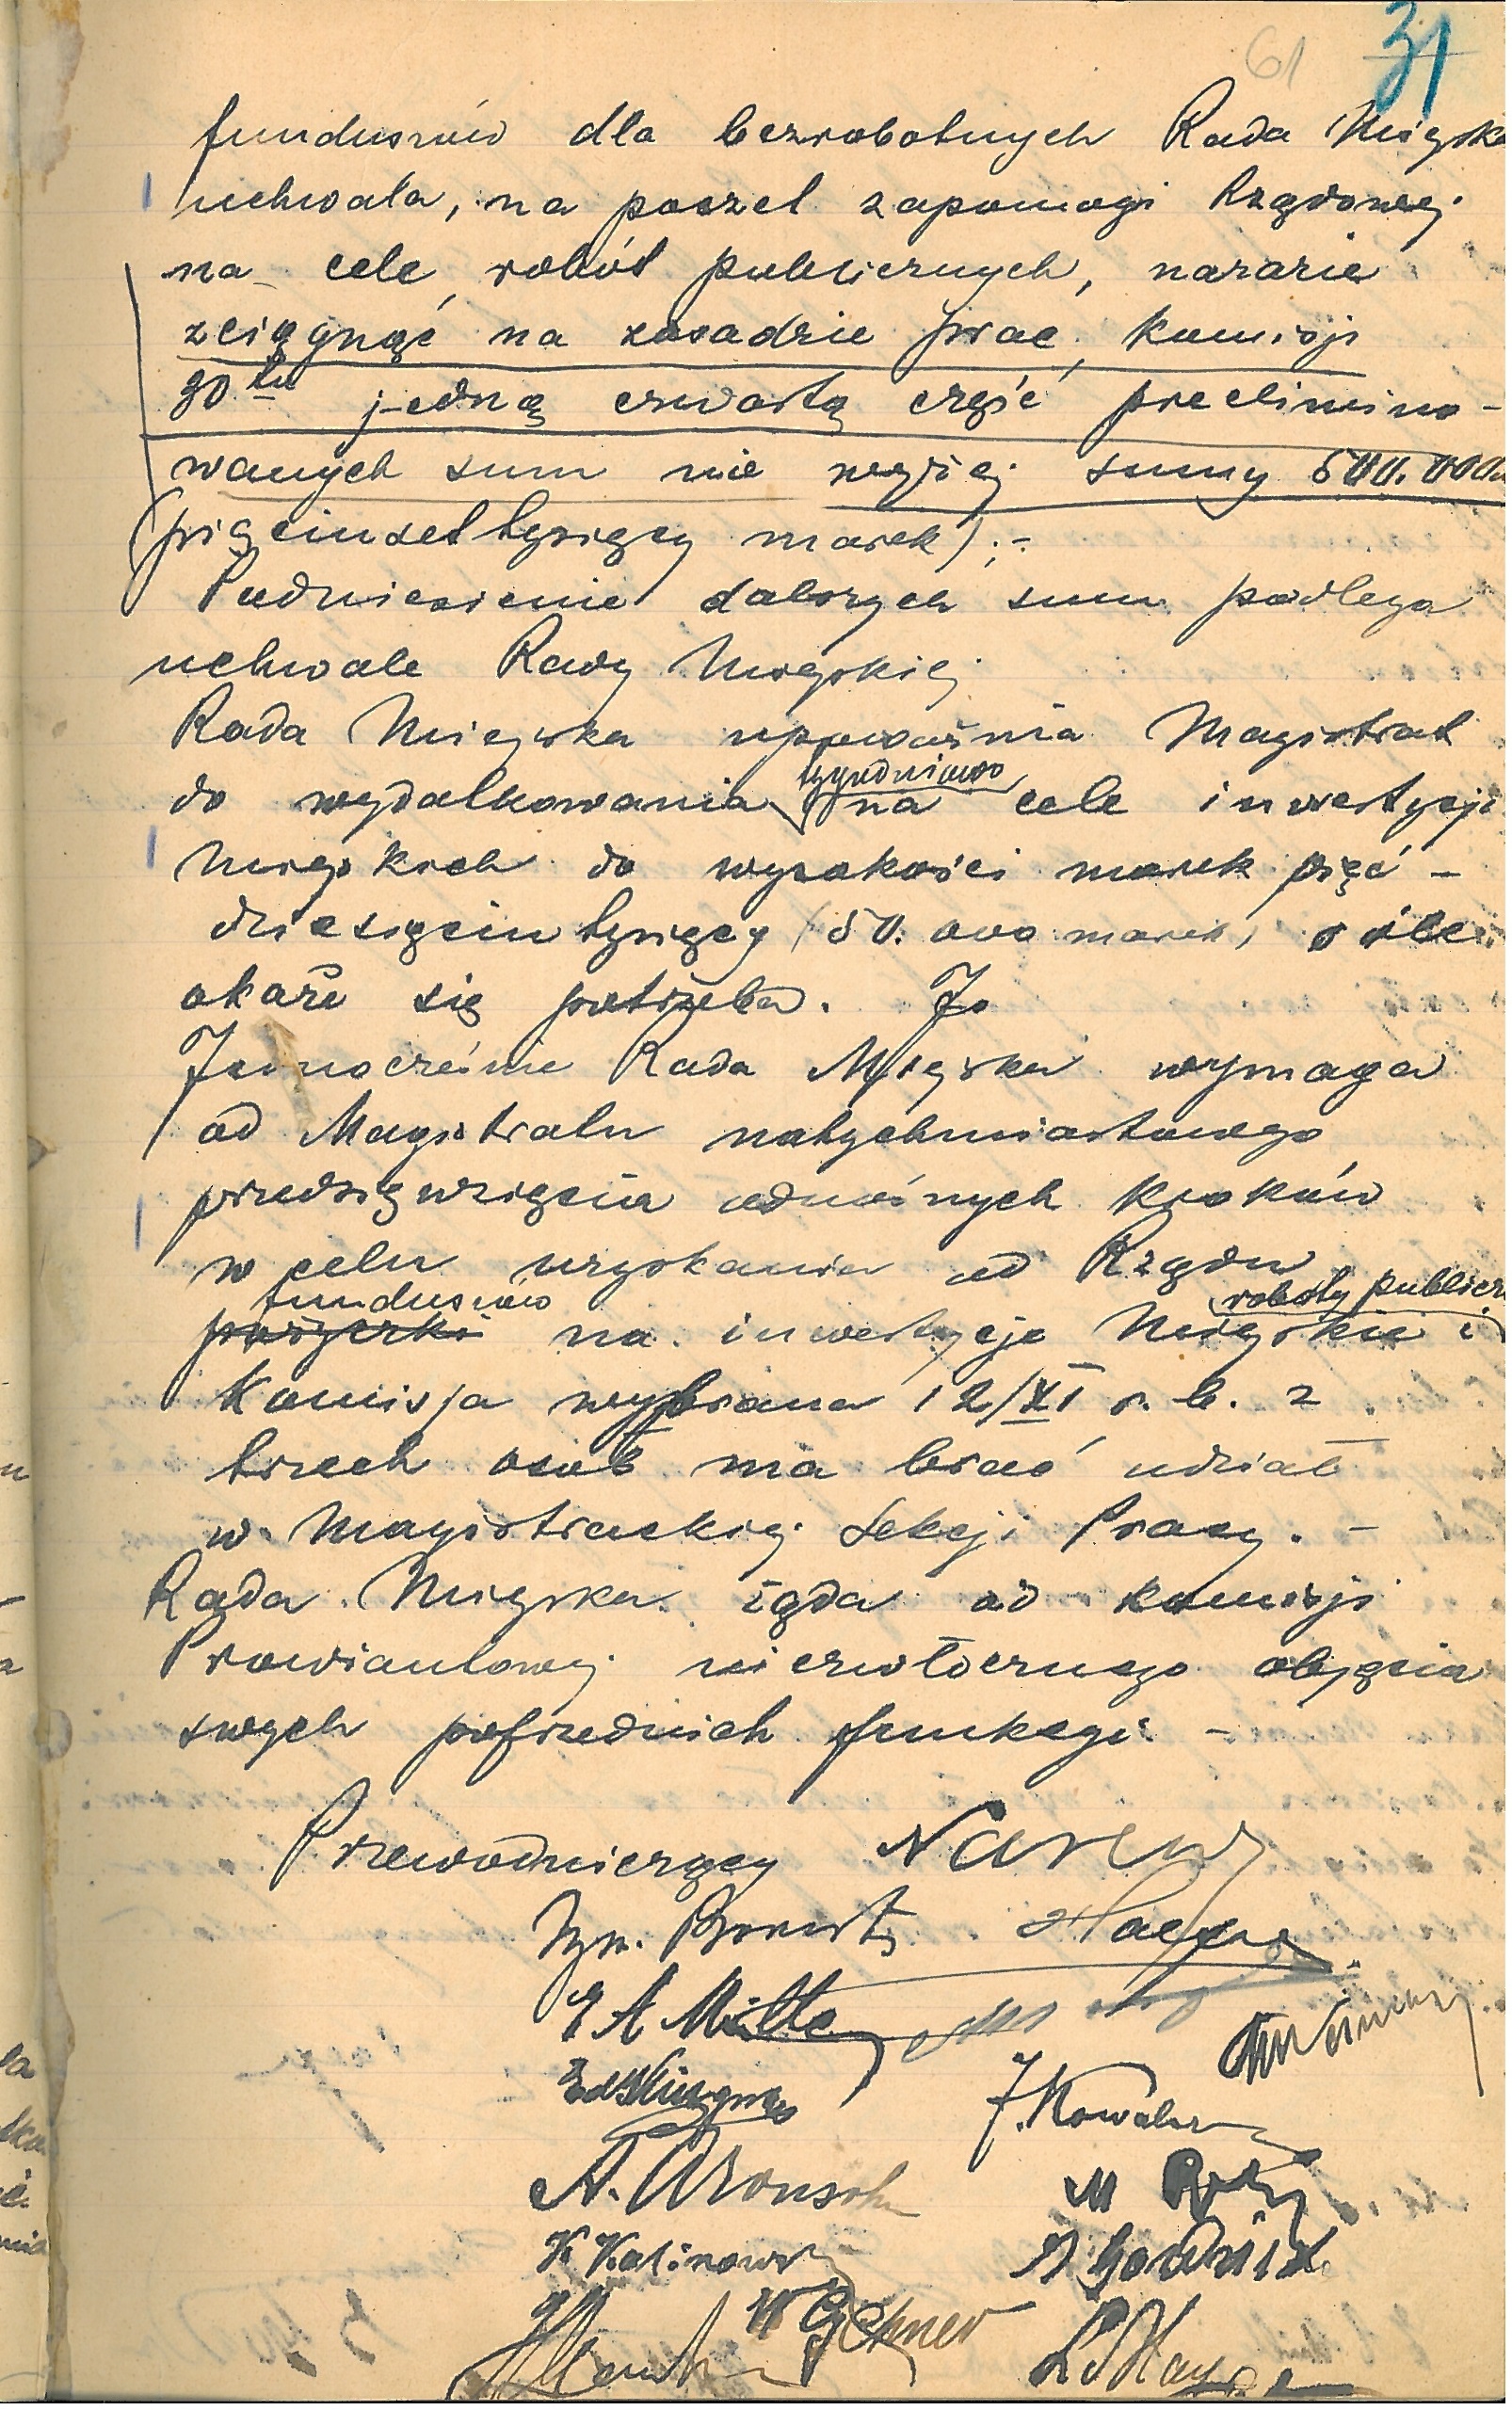 61 31
funduszów dla bezrobotnych Rada Miejska
uchwala, na poszet zapomogi Rządowej
na cele robót publicznych, narazie
zciągnąć na zasadzie prac komisji
30tu jedną czwartą część preelimino-
wanych sum nie wyżej sumy 500.000
(pięciuset tysięcy marek);-
Podniesienie dalszych sum podlega
uchwale Rady Miejskiej
Rada Miejska upoważnia Magistrat
do wydatkowania tygodniowo na cele inwestycji
Miejskich do wysokości marek pięć-
dziesięciu tysięcy (50.000 marek) o ile
okaże się potrzeba. Je
Jednocześnie Rada Miejska wymaga
od Magistratu natychmiastowego
przedsięwzięcia odnośnych kroków
w celu uzyskania od Rządu
funduszów roboty publicz
pożyczki na inwestycje Miejskie i
Komisja wybrana 12/XI r. b. z
trzech osób ma brać udział
w Magistrackiej Sekcji Pracy. -
Rada Miejska żąda od komisji
Prowiantowej niezwłocznego objęcia
swych poprzednich funkcji. -
Przewodniczący
J. Kowals
A. Aronsohn
K Kalinows